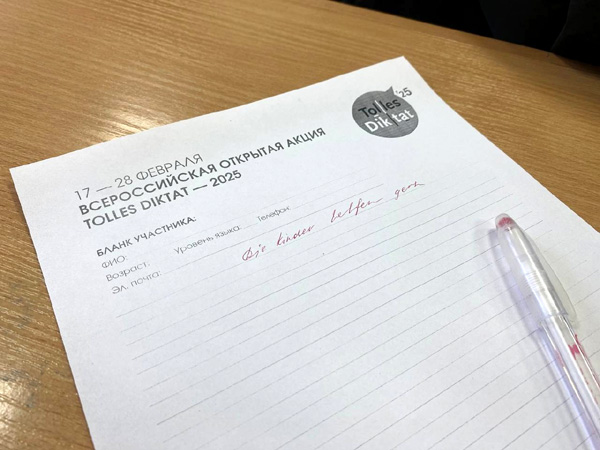 17 — 28 ФЕВРАЛЯ
ВСЕРОССИЙСКАЯ ОТКРЫТАЯ АКЦИЯ
TOLLES DIKTAT — 2025
Tolles '25
Diktat
БЛАНК УЧАСТНИКА:
ФИО:
Возраст: Уровень языка: Телефон:
Эл. почта:
Die Kinder helfen gern